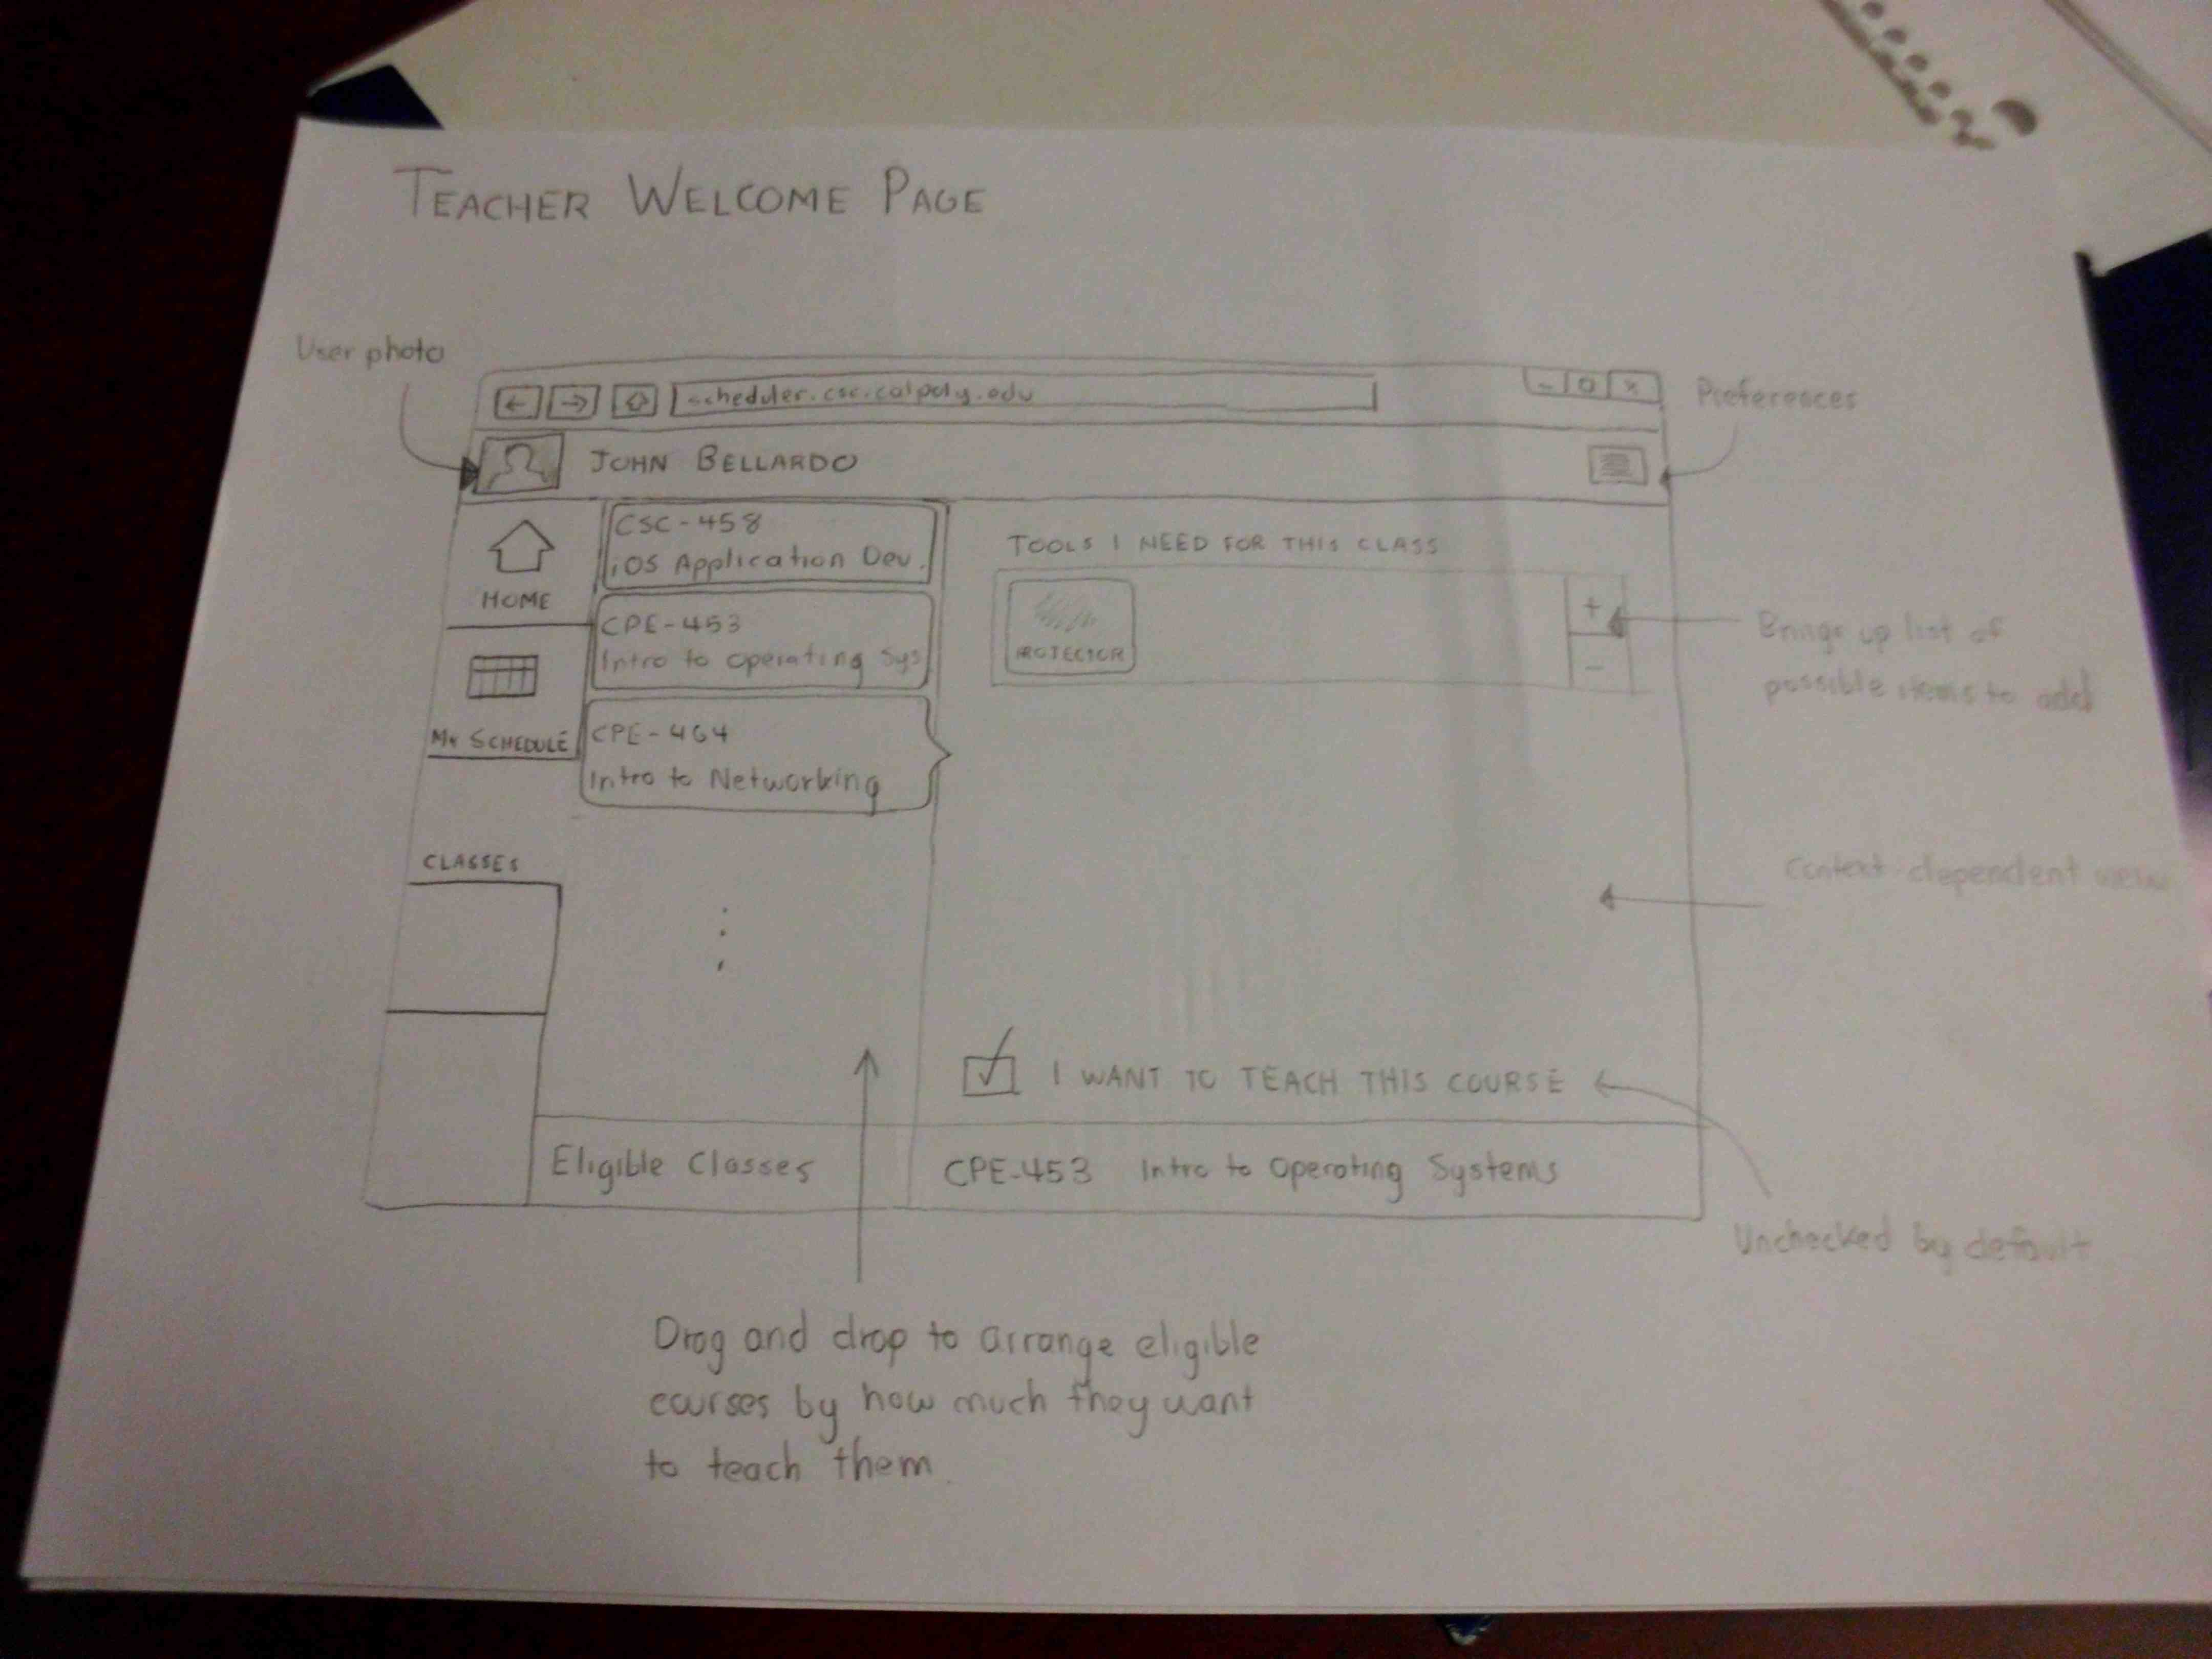 TEACHER WELCOME PAGE
User photo
scheduler.csc.calpoly.edu
Preferences
JOHN BELLARDO
HOME
MY SCHEDULE
CLASSES
CSC-458
iOS Application Dev.
CPE-453
Intro to Operating Sys
CPE-464
Intro to Networking
TOOLS I NEED FOR THIS CLASS
PROJECTOR
+
-
Brings up list of
possible items to add
Context dependent view
I WANT TO TEACH THIS COURSE
Eligible Classes
CPE-453 Intro to Operating Systems
Unchecked by default
Drag and drop to arrange eligible
courses by how much they want
to teach them.